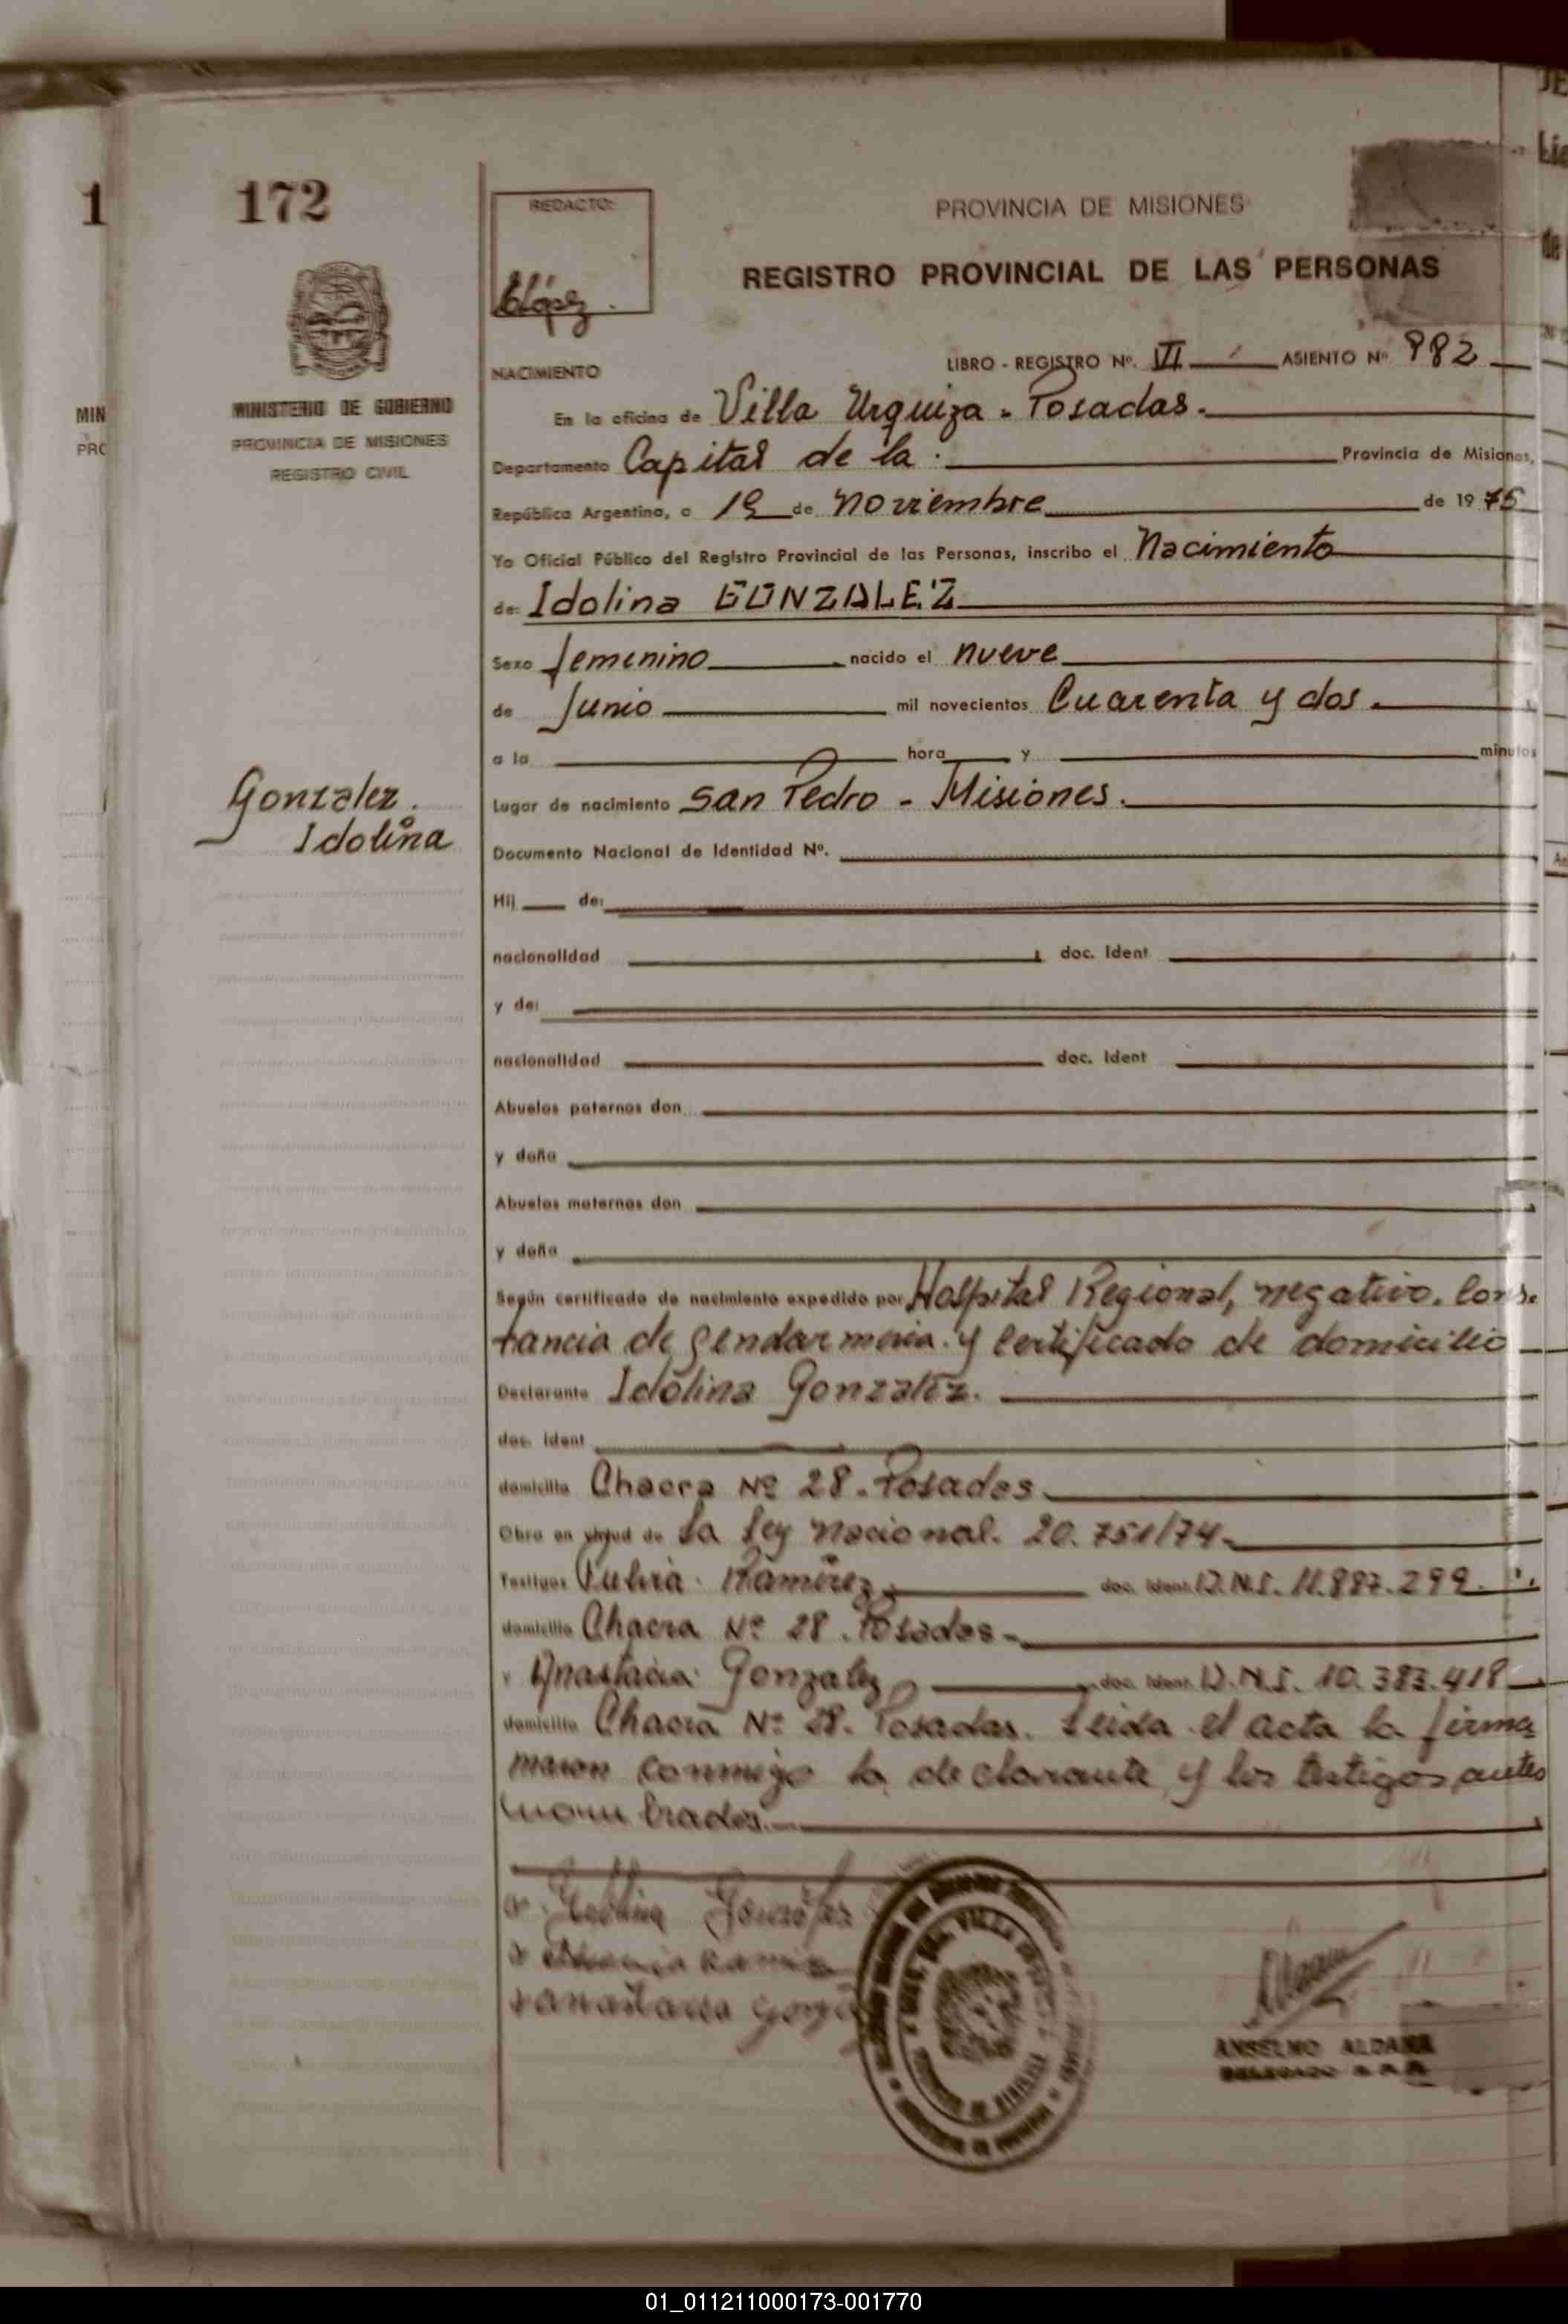 172
REDACTO:
López
PROVINCIA DE MISIONES
REGISTRO PROVINCIAL DE LAS PERSONAS
MINISTERIO DE GOBIERNO
PROVINCIA DE MISIONES
REGISTRO CIVIL
LIBRO - REGISTRO Nº. VI ASIENTO Nº 982
NACIMIENTO
En la oficina de Villa Urquiza - Posadas.
Departamento Capital de la Provincia de Misiones,
República Argentina, a 19 de Noviembre de 1975
Yo Oficial Público del Registro Provincial de las Personas, inscribo el Nacimiento
de: Idolina GONZALEZ
Sexo femenino nacido el nueve
de Junio mil novecientos Cuarenta y dos.
a la hora y minutos
Gonzalez.
Idolina
Lugar de nacimiento San Pedro - Misiones.
Documento Nacional de Identidad Nº.
Hij de:
nacionalidad doc. Ident
y de:
nacionalidad doc. Ident
Abuelos paternos don
y doña
Abuelos maternos don
y doña
Según certificado de nacimiento expedido por Hospital Regional, negativo. Cons-
tancia de gendarmeria. y Certificado de domicilio
Declarante Idolina Gonzalez.
doc. Ident
domicilio Chacra Nº 28. Posadas
Obra en virtud de La Ley Nacional. 20.751/74-
Testigos Ramirez doc. Ident. D.N.I. 11.887.299.
domicilio Chacra Nº 28. Posadas-
y Anastacia Gonzalez doc. Ident. D.N.I. 10.383.418
domicilio Chacra Nº 28. Posadas. Leida el acta la firma-
maron conmigo la declarante y los testigos antes
nombrados.
Idolina Gonzalez
Ramirez
anastacia
ANSELMO ALDANA
DELEGADO
01_011211000173-001770